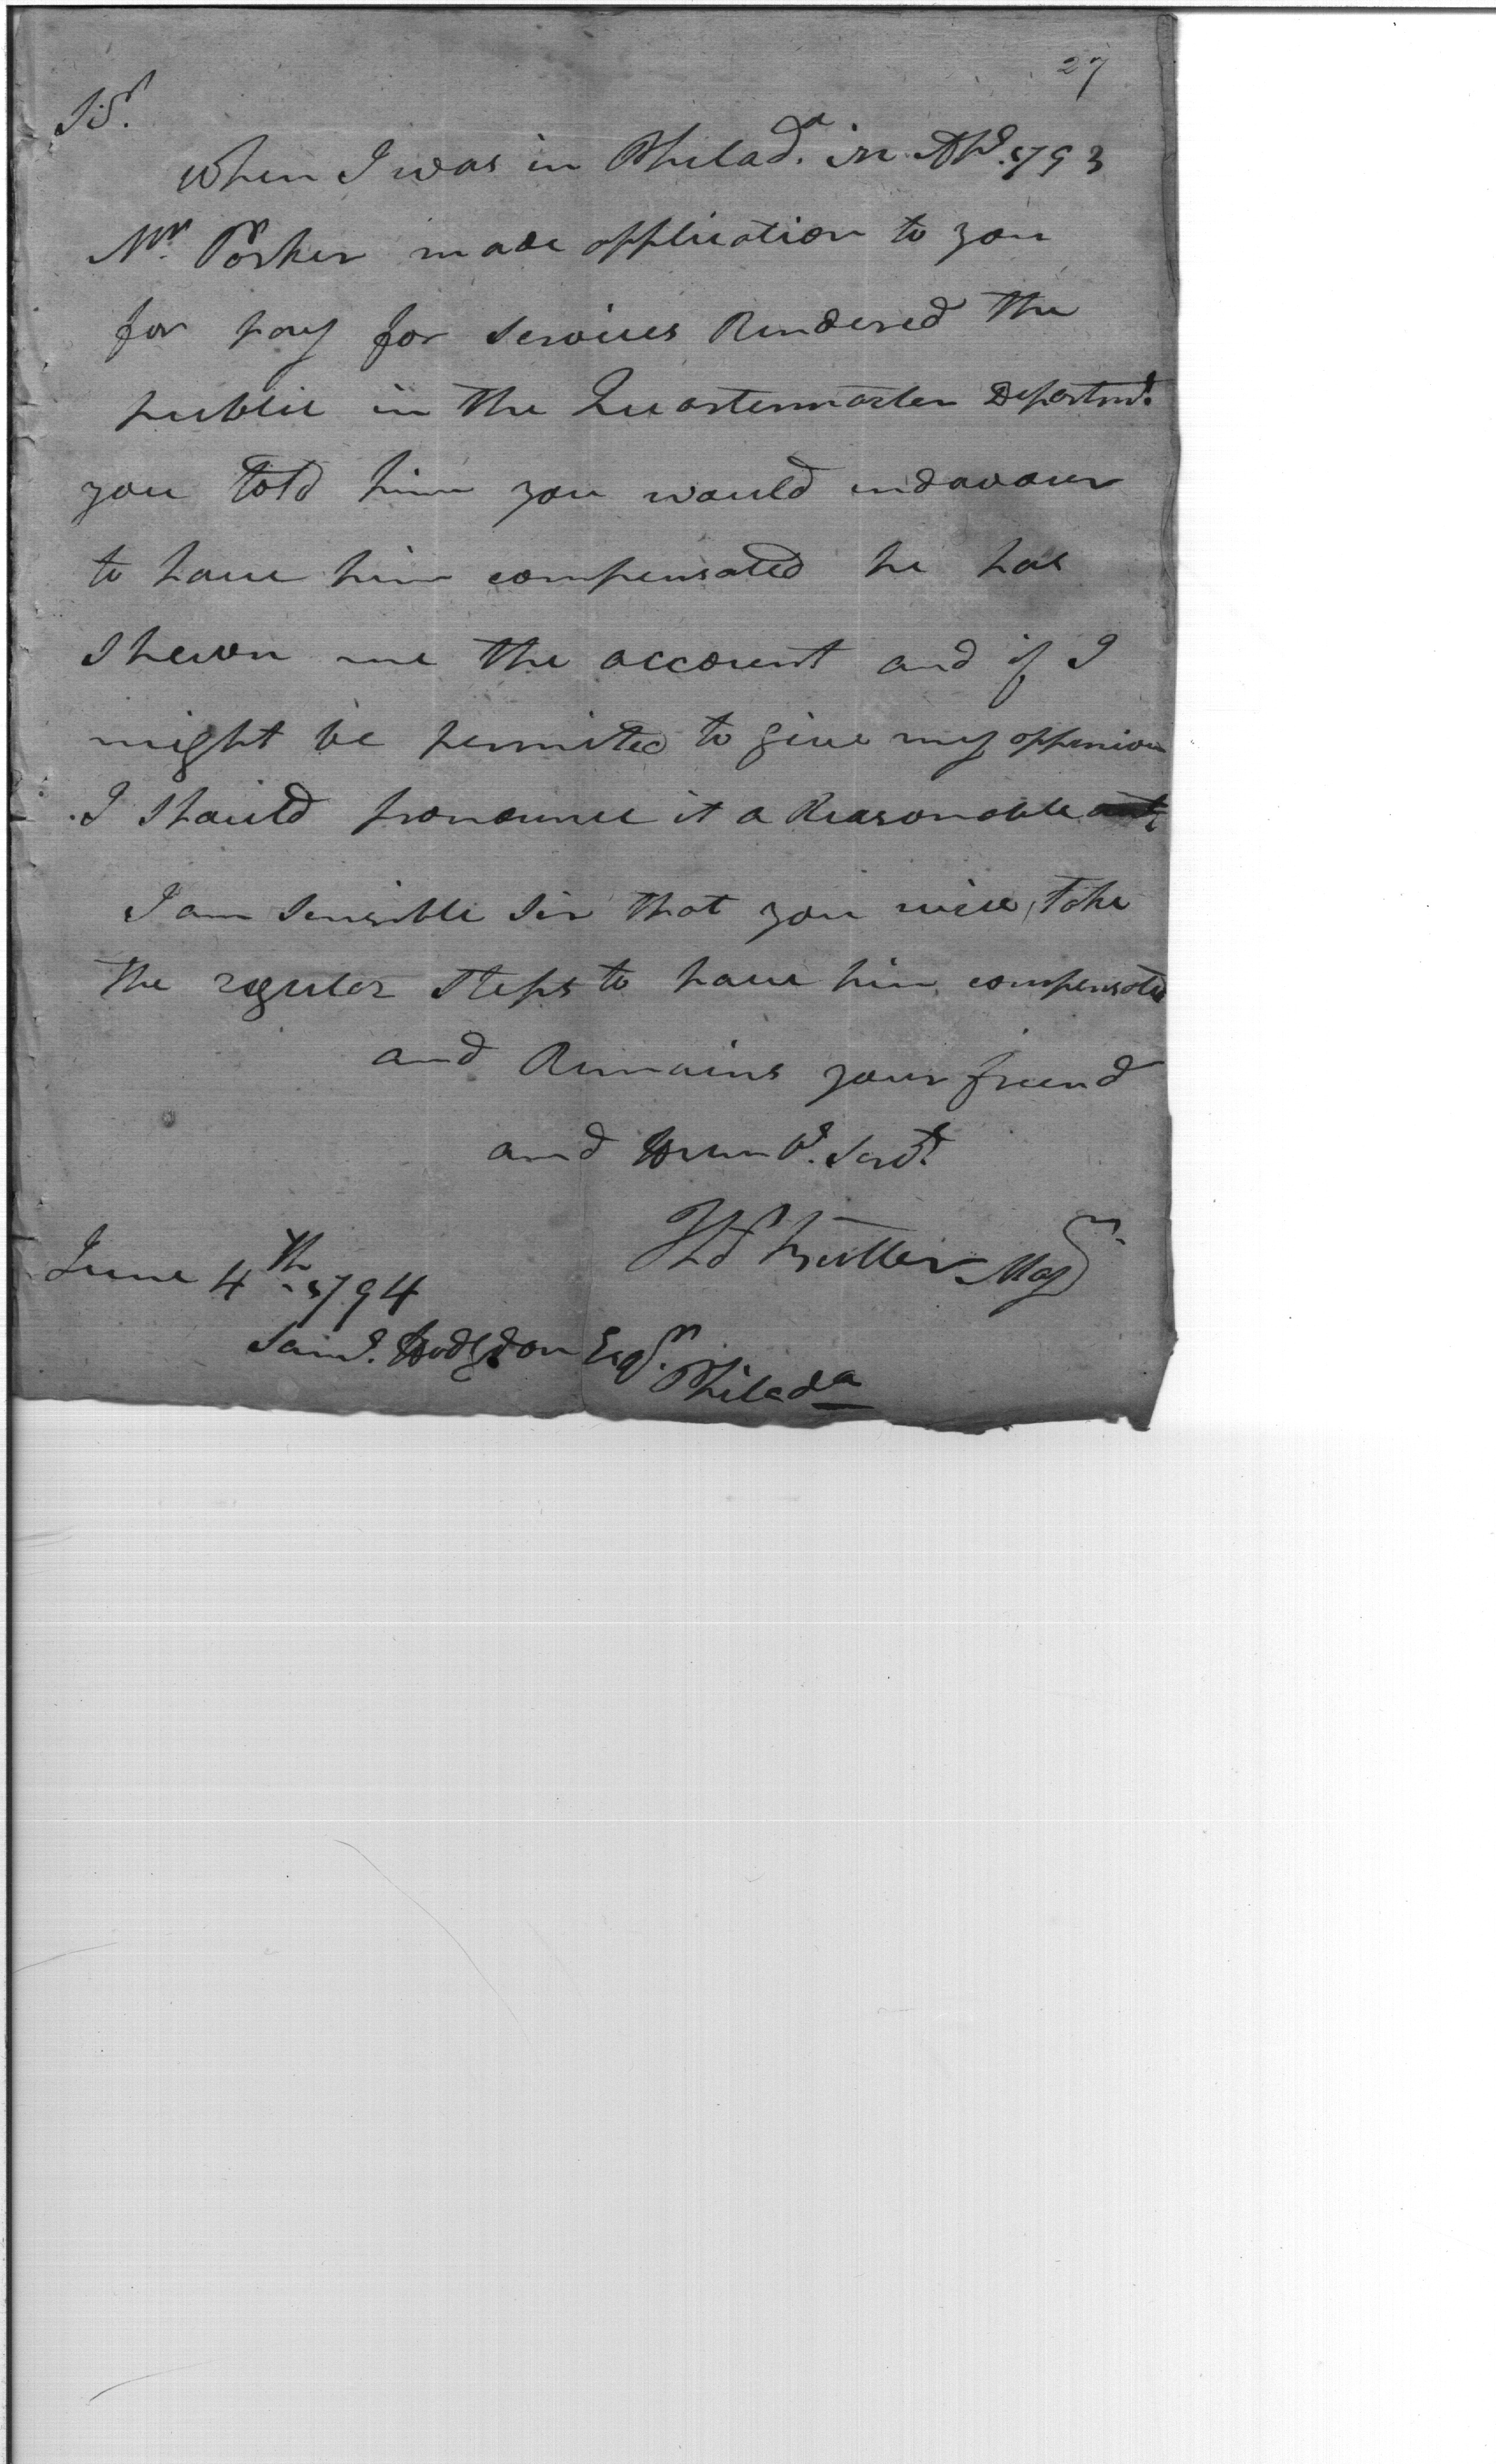 27
Sr.
When I was in Philada. in Apl. 1793
Mr. Parker made application to you
for pay for services Rendered the
public in the Quartermaster Departmt.
you told him you would endavour
to have him compensated he has
shewn me the account and if I
might be permited to give my oppinion
I should pronounce it a Reasonable
I am sensible sir that you will take
the regular steps to have him compensated
and Remains your friend
and Humbl. Servt.
Thos Butler Majr.
June 4th 1794
Saml. Hodgdon Esqr.
Philada